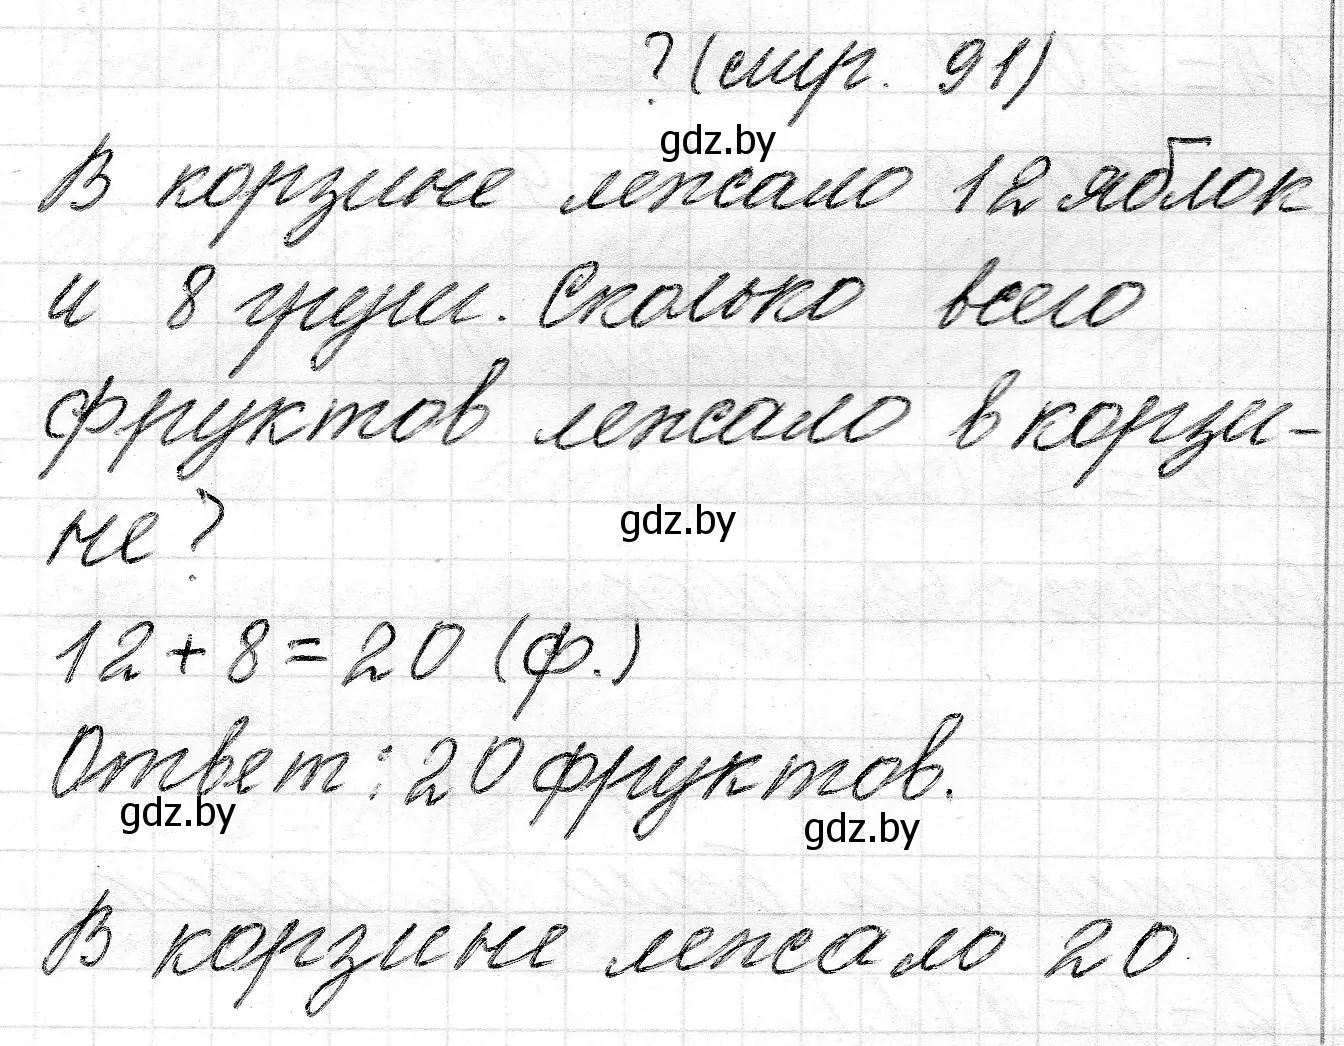 ? (стр. 91)
gdz.by
В корзине лежало 12 яблок
и 8 груш. Сколько всего
фруктов лежало в корзи-
не?
gdz.by
12 + 8 = 20 (ф.)
Ответ: 20 фруктов.
gdz.by
gdz.by
В корзине лежало 20